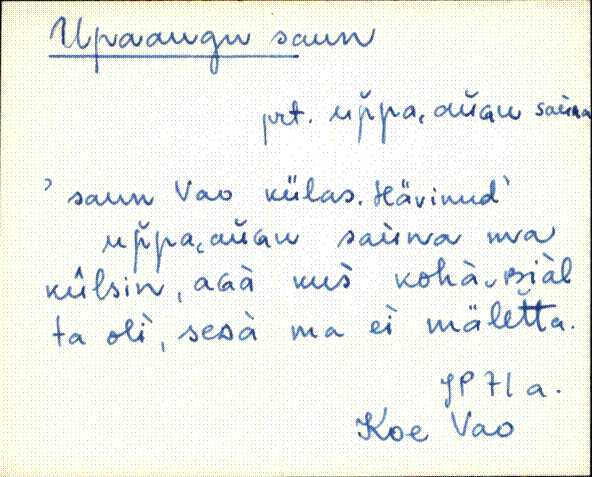 Upaaugu saun
prt. up̆pa, aŭɢu saùna
' saun Vao külas. Hävinud'
up̆pa, aŭɢu saùna ma
kûlsin, aɢà kuš kohà, piàl
ta olì, seDà ma ei mälet̆ta.
JP 71 a.
Koe Vao